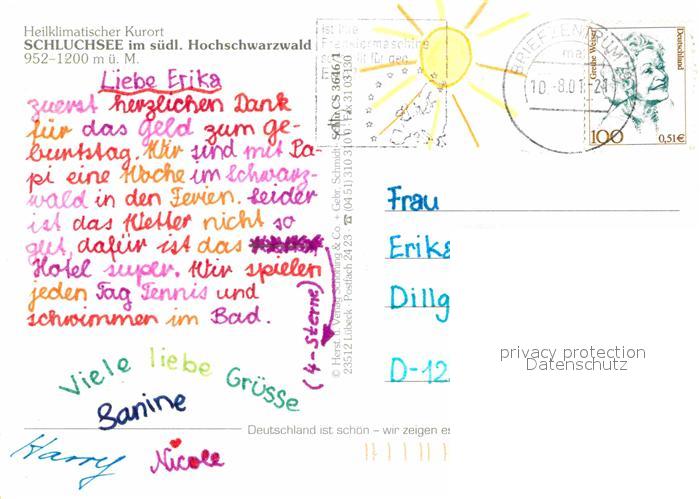 Heilklimatischer Kurort
SCHLUCHSEE im südl. Hochschwarzwald
952–1200 m ü. M.
Liebe Erika
zuerst herzlichen Dank
für das Geld zum Ge-
burtstag. Wir sind mit Pa-
pi eine Woche im Schwarz-
wald in den Ferien. Leider
ist das Wetter nicht so
gut, dafür ist das
Hotel super. Wir spielen
jeden Tag Tennis und
schwimmen im Bad.
(4-Sterne)
Viele liebe Grüsse
Sanine
Harry
Nicole
Schlu CS 3646/1
23512 Lübeck · Postfach 24 23
Deutschland ist schön – wir zeigen es
ist Ihre
Frankiermaschine
BRIEFZENTRUM
10.-8.01-21
Grethe Weiser
Deutschland
100
0,51€
Frau
Erika
Dillg
D-12
privacy protection
Datenschutz